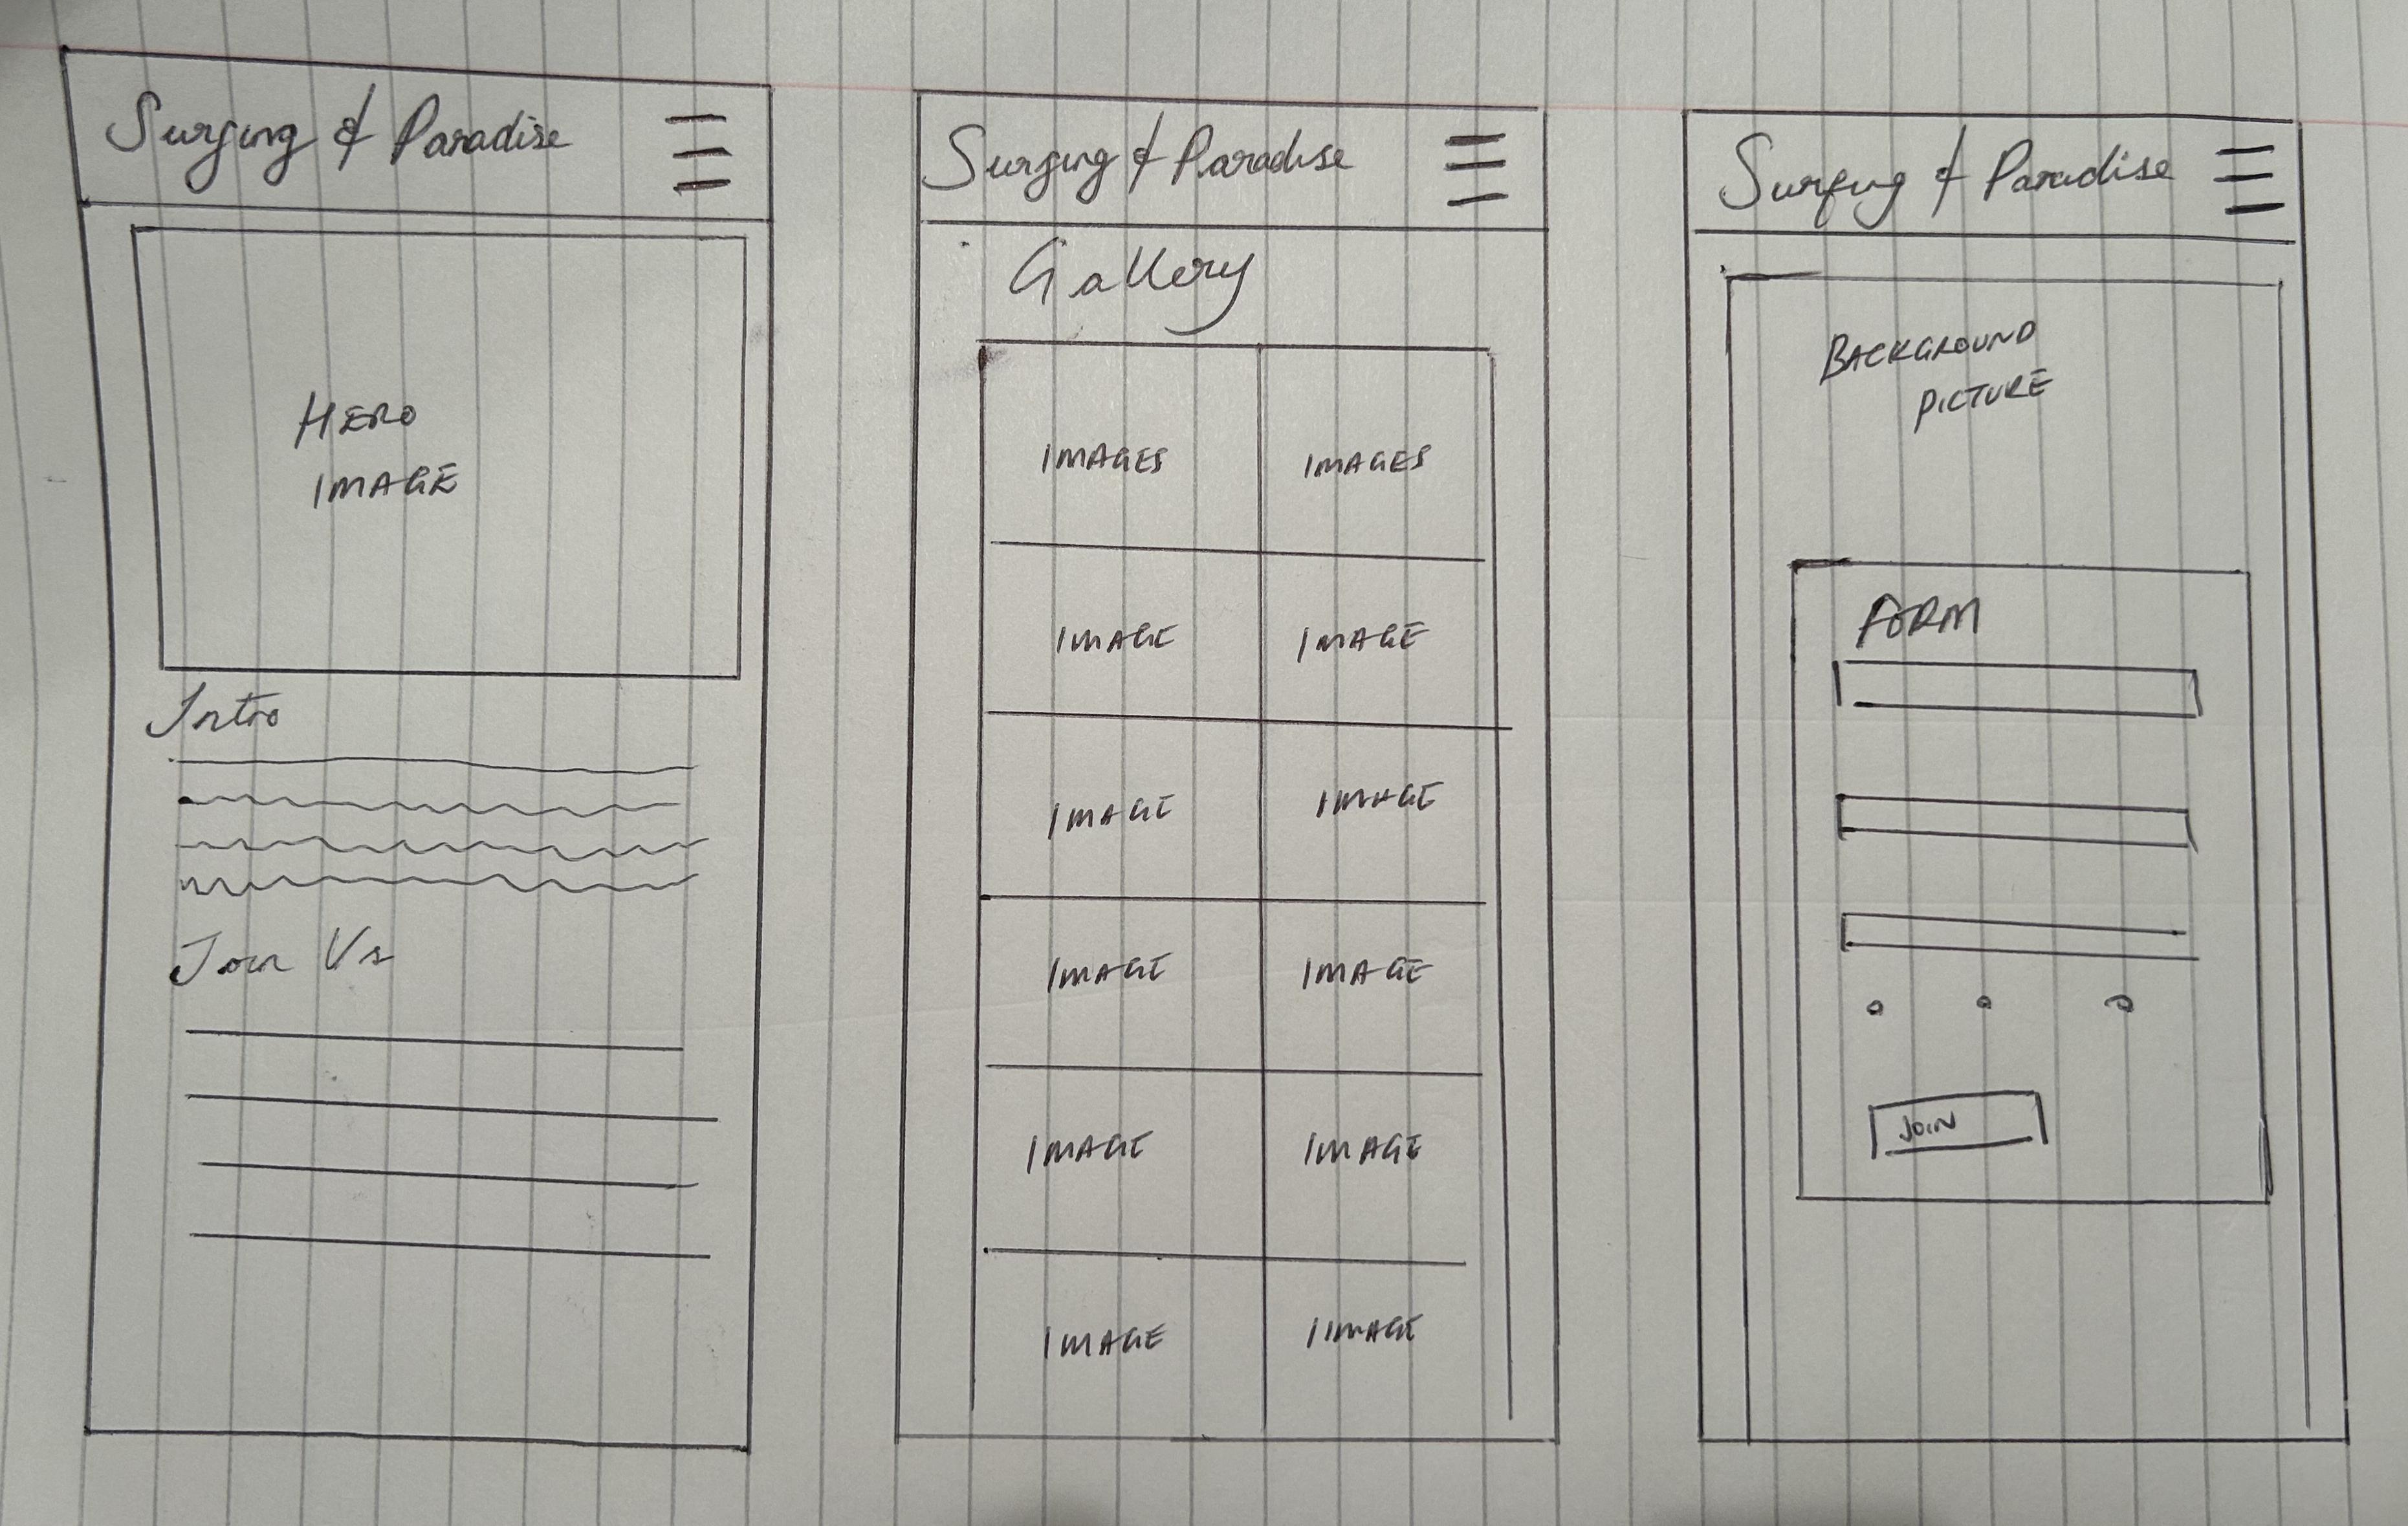 Surfing & Paradise
HERO
IMAGE
Intro
Join Us
Surfing & Paradise
Gallery
IMAGES IMAGES
IMAGE IMAGE
IMAGE IMAGE
IMAGE IMAGE
IMAGE IMAGE
IMAGE IMAGE
Surfing & Paradise
BACKGROUND
PICTURE
FORM
JOIN